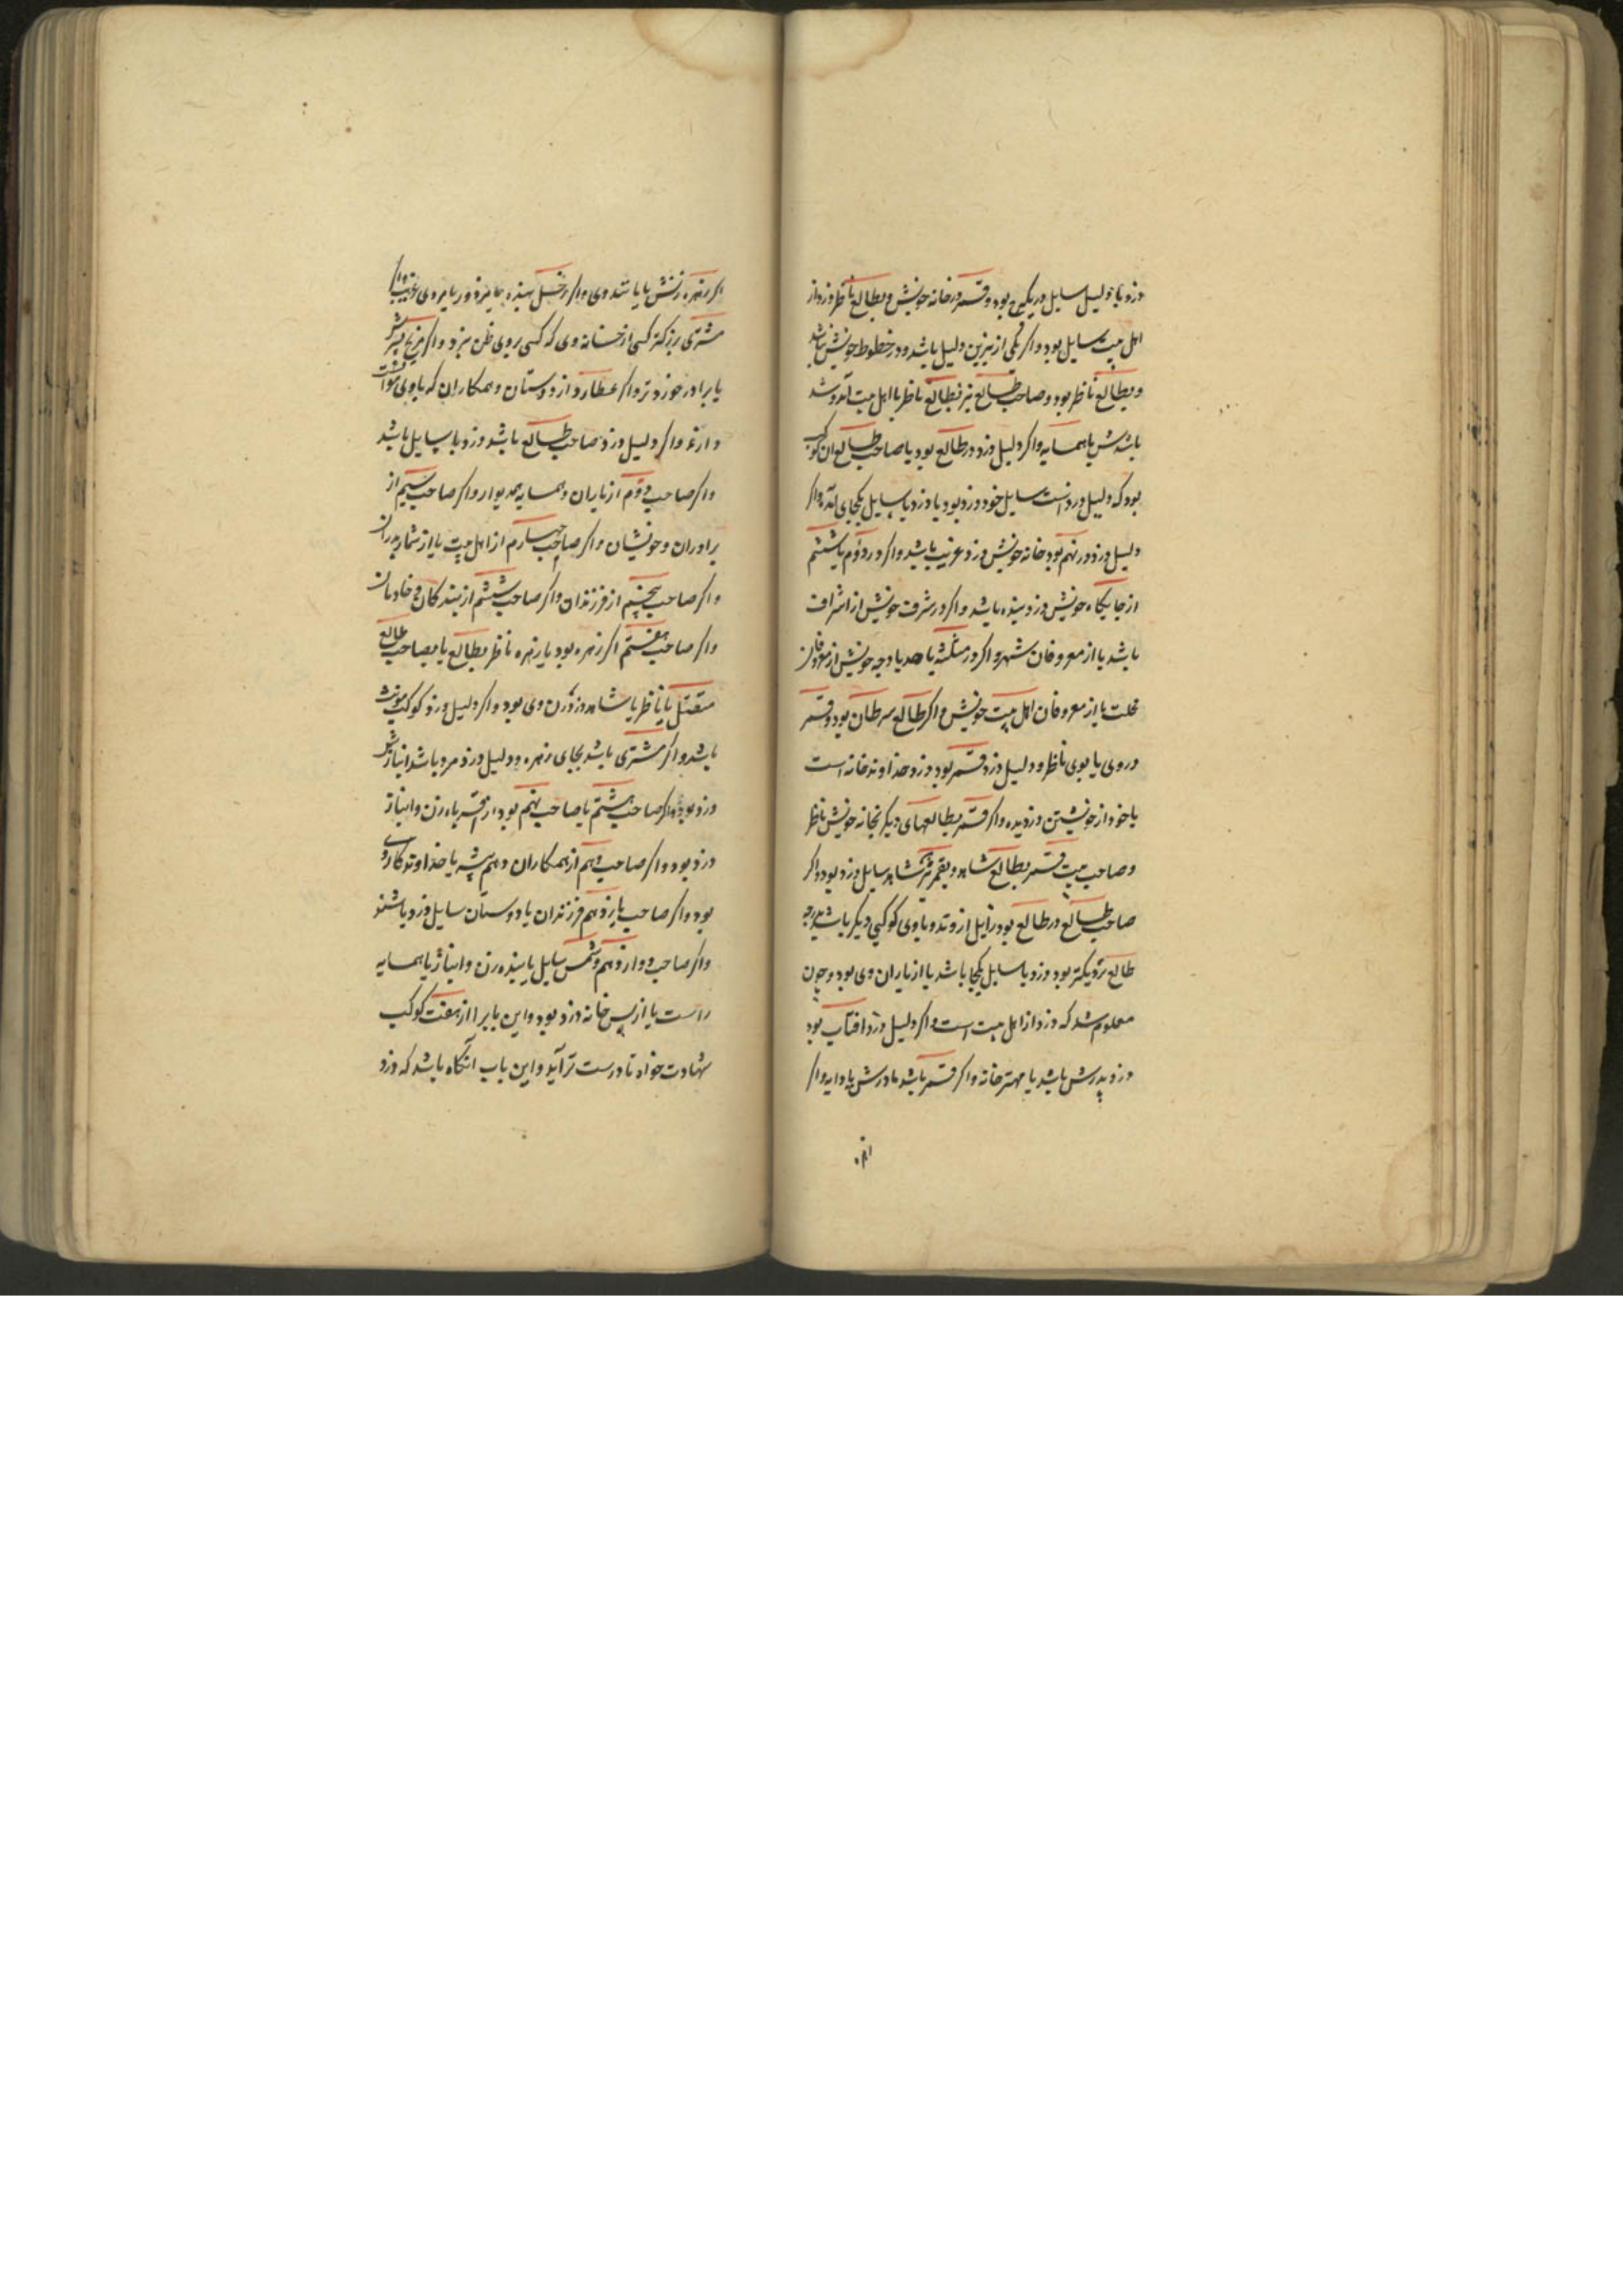 دزد با دلیل سایل در یک برج بود و قمر در خانه خویش و بطالع ناظر دزد از
اهل بیت سایل بود و اگر یکی از نیرین دلیل باشد و در خطوط خویش باشد
و بطالع ناظر بود و صاحب طالع نیز بطالع ناظر با اهل بیت آمد و شد
باشدش یا همسایه و اگر دلیل دزد در طالع بود یا صاحب طالع ان کوکب
بود که دلیل دزدست سایل خود دزد بود یا دزد با سایل یکجای آمد و اگر
دلیل دزد در نهم بود خانه خویش دزد غریب باشد و اگر در دوم یا ششم
از جایگاه خویش دزد بنده باشد و اگر در شرف خویش از اشراف
باشد یا از معروفان شهر و اگر در مثلثه یا حد یا وجه خویش از معروفان
محلت یا از معروفان اهل بیت خویش و اگر طالع سرطان بود و قمر
در وی یا بوی ناظر و دلیل دزد قمر بود دزد خداوند خانه است
یا خود از خویشتن دزدیده و اگر قمر بطالعهای دیگر بخانه خویش ناظر
و صاحب بیت قمر بطالع شاهد و بقمر شاهد سایل دزد بود و اگر
صاحب طالع در طالع بود زایل از وتد و با وی کوکبی دیگر باشد بدرجه
طالع نزدیکتر بود دزد با سایل یکجا باشد یا از یاران وی بود و چون
معلوم شد که دزد از اهل بیت است و اگر دلیل دزد افتاب بود
دزد پدرش باشد یا مهتر خانه و اگر قمر باشد مادرش یا دایه و اگر
اگر زهره زنش یا یا وی و اگر زحل بنده یا مزدور یا مردی غریب و اگر
مشتری بزرکتر کسی از خانه وی که کسی بروی ظن نبرد و اگر مریخ پسرش
یا برادر خورد تر و اگر عطارد از دوستان و همکاران که با وی موافقت
دارند و اگر دلیل دزد صاحب طالع باشد دزد با سایل باشد
و اگر صاحب دوم از یاران و همسایه همدیوار و اگر صاحب سیم از
برادران و خویشان و اگر صاحب چهارم از اهل بیت یا از شمار پدران
و اگر صاحب پنجم از فرزندان و اگر صاحب ششم از بندکان و خادمان
و اگر صاحب هفتم اگر زهره بود یا زهره ناظر بطالع یا بصاحب طالع
متصل یا ناظر یا شاهد دزد زن وی بود و اگر دلیل دزد کوکب مونث
باشد و اگر مشتری باشد بجای زهره و دلیل دزد مرد باشد انبازش
دزد بود و اگر صاحب هشتم یا صاحب نهم بود از اقربا زن و انباز
دزد بود و اگر صاحب دهم از همکاران و هم پیشه یا خداوند کار وی
بود و اگر صاحب یازدهم فرزندان یا دوستان سایل دزد باشند
و اگر صاحب دوازدهم دشمن سایل یا بنده زن و انباز یا همسایه
راست یا از پس خانه دزد بود و این بابرا از هفت کوکب
شهادت خواه تا درست تر آید و این باب آنگاه باشد که دزد